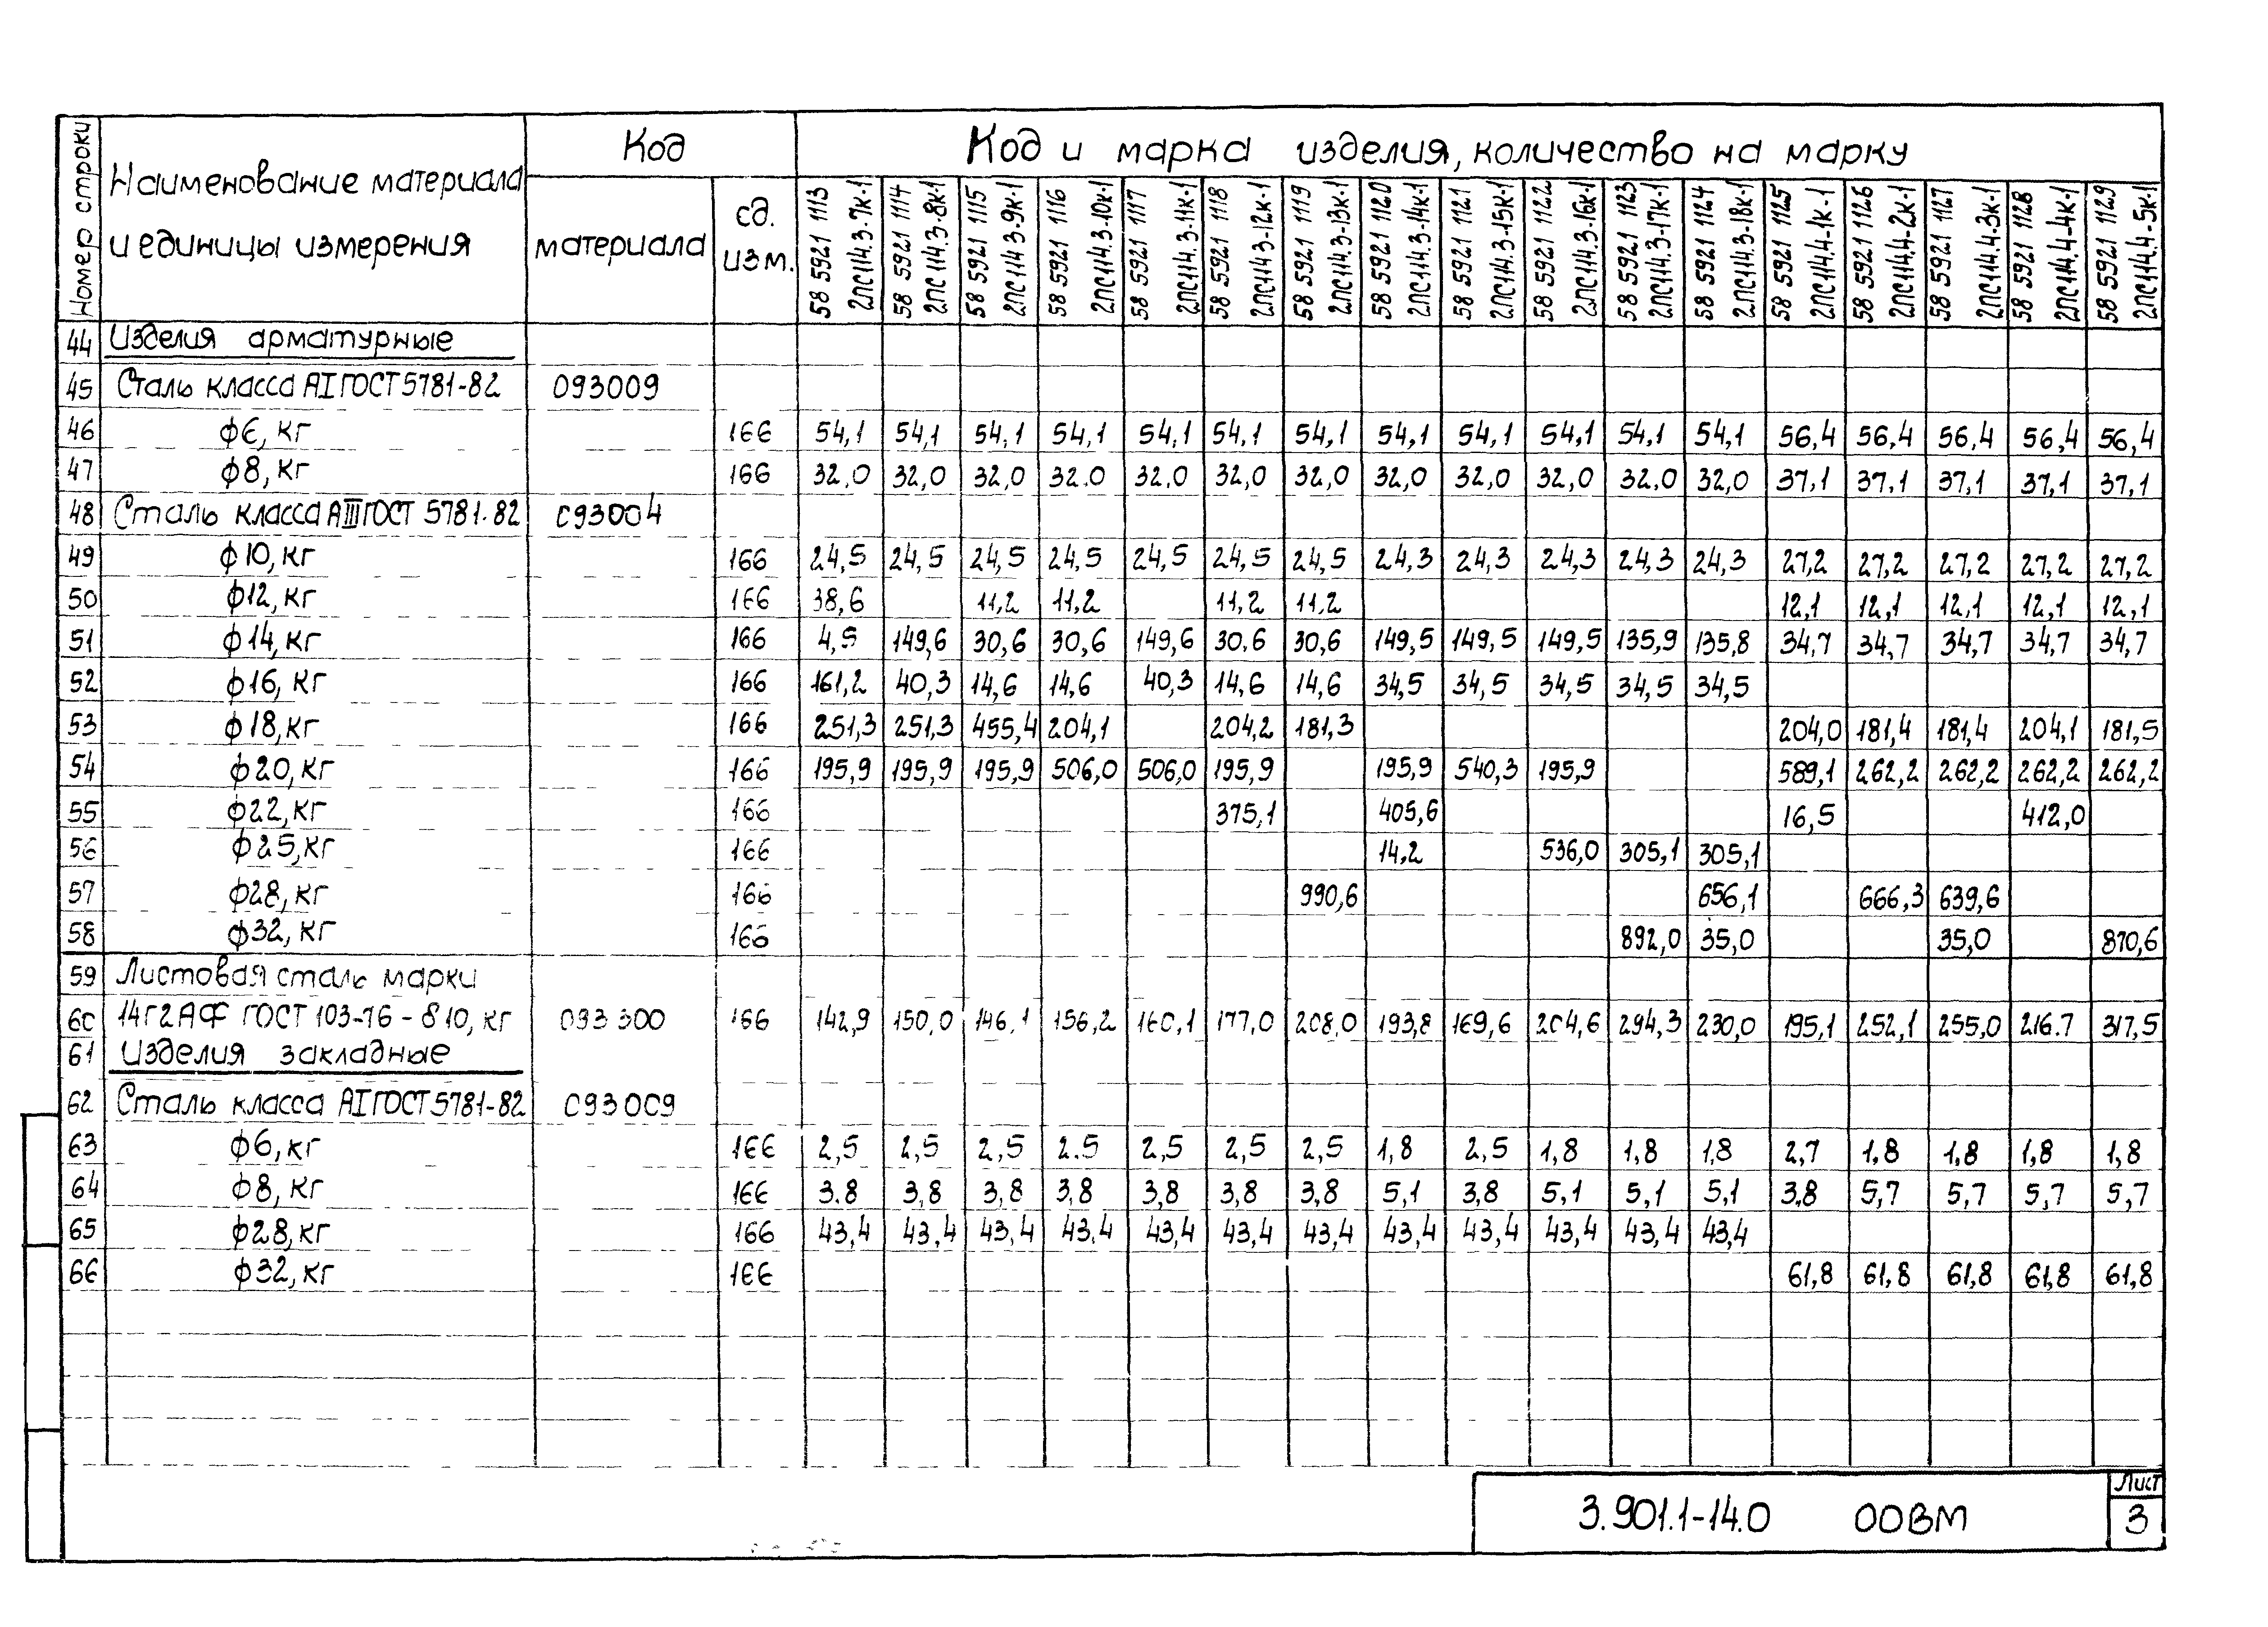 Номер строки
Наименование материала
и единицы измерения
Код
материала
ед. изм.
Код и марка изделия, количество на марку
58 5921 1113 2ПС114.3-7к-1
58 5921 1114 2ПС114.3-8к-1
58 5921 1115 2ПС114.3-9к-1
58 5921 1116 2ПС114.3-10к-1
58 5921 1117 2ПС114.3-11к-1
58 5921 1118 2ПС114.3-12к-1
58 5921 1119 2ПС114.3-13к-1
58 5921 1120 2ПС114.3-14к-1
58 5921 1121 2ПС114.3-15к-1
58 5921 1122 2ПС114.3-16к-1
58 5921 1123 2ПС114.3-17к-1
58 5921 1124 2ПС114.3-18к-1
58 5921 1125 2ПС114.4-1к-1
58 5921 1126 2ПС114.4-2к-1
58 5921 1127 2ПС114.4-3к-1
58 5921 1128 2ПС114.4-4к-1
58 5921 1129 2ПС114.4-5к-1
44 Изделия арматурные
45 Сталь класса АI ГОСТ 5781-82 093009
46 ф6, кг 166 54,1 54,1 54,1 54,1 54,1 54,1 54,1 54,1 54,1 54,1 54,1 54,1 56,4 56,4 56,4 56,4 56,4
47 ф8, кг 166 32,0 32,0 32,0 32.0 32,0 32,0 32,0 32,0 32,0 32,0 32,0 32,0 37,1 37,1 37,1 37,1 37,1
48 Сталь класса АIII ГОСТ 5781-82 093004
49 ф10, кг 166 24,5 24,5 24,5 24,5 24,5 24,5 24,5 24,3 24,3 24,3 24,3 24,3 27,2 27,2 27,2 27,2 27,2
50 ф12, кг 166 38,6 11,2 11,2 11,2 11,2 12,1 12,1 12,1 12,1 12,1
51 ф14, кг 166 4,5 149,6 30,6 30,6 149,6 30,6 30,6 149,5 149,5 149,5 135,9 135,8 34,7 34,7 34,7 34,7 34,7
52 ф16, кг 166 161,2 40,3 14,6 14,6 40,3 14,6 14,6 34,5 34,5 34,5 34,5 34,5
53 ф18, кг 166 251,3 251,3 455,4 204,1 204,2 181,3 204,0 181,4 181,4 204,1 181,5
54 ф20, кг 166 195,9 195,9 195,9 506,0 506,0 195,9 195,9 540,3 195,9 589,1 262,2 262,2 262,2 262,2
55 ф22, кг 166 375,1 405,6 16,5 412,0
56 ф25, кг 166 14,2 536,0 305,1 305,1
57 ф28, кг 166 990,6 656,1 666,3 639,6
58 ф32, кг 166 892,0 35,0 35,0 870,6
59 Листовая сталь марки
60 14Г2АФ ГОСТ 103-76 - δ10, кг 093300 166 142,9 150,0 146,1 156,2 160,1 177,0 208,0 193,8 169,6 204,6 294,3 230,0 195,1 252,1 255,0 216.7 317,5
61 Изделия закладные
62 Сталь класса АI ГОСТ 5781-82 093009
63 ф6, кг 166 2,5 2,5 2,5 2.5 2,5 2,5 2,5 1,8 2,5 1,8 1,8 1,8 2,7 1,8 1,8 1,8 1,8
64 ф8, кг 166 3.8 3,8 3,8 3,8 3,8 3,8 3,8 5,1 3,8 5,1 5,1 5,1 3,8 5,7 5,7 5,7 5,7
65 ф28, кг 166 43,4 43,4 43,4 43,4 43,4 43,4 43,4 43,4 43,4 43,4 43,4 43,4
66 ф32, кг 166 61,8 61,8 61,8 61,8 61,8
3.901.1-14.0 00ВМ
Лист
3